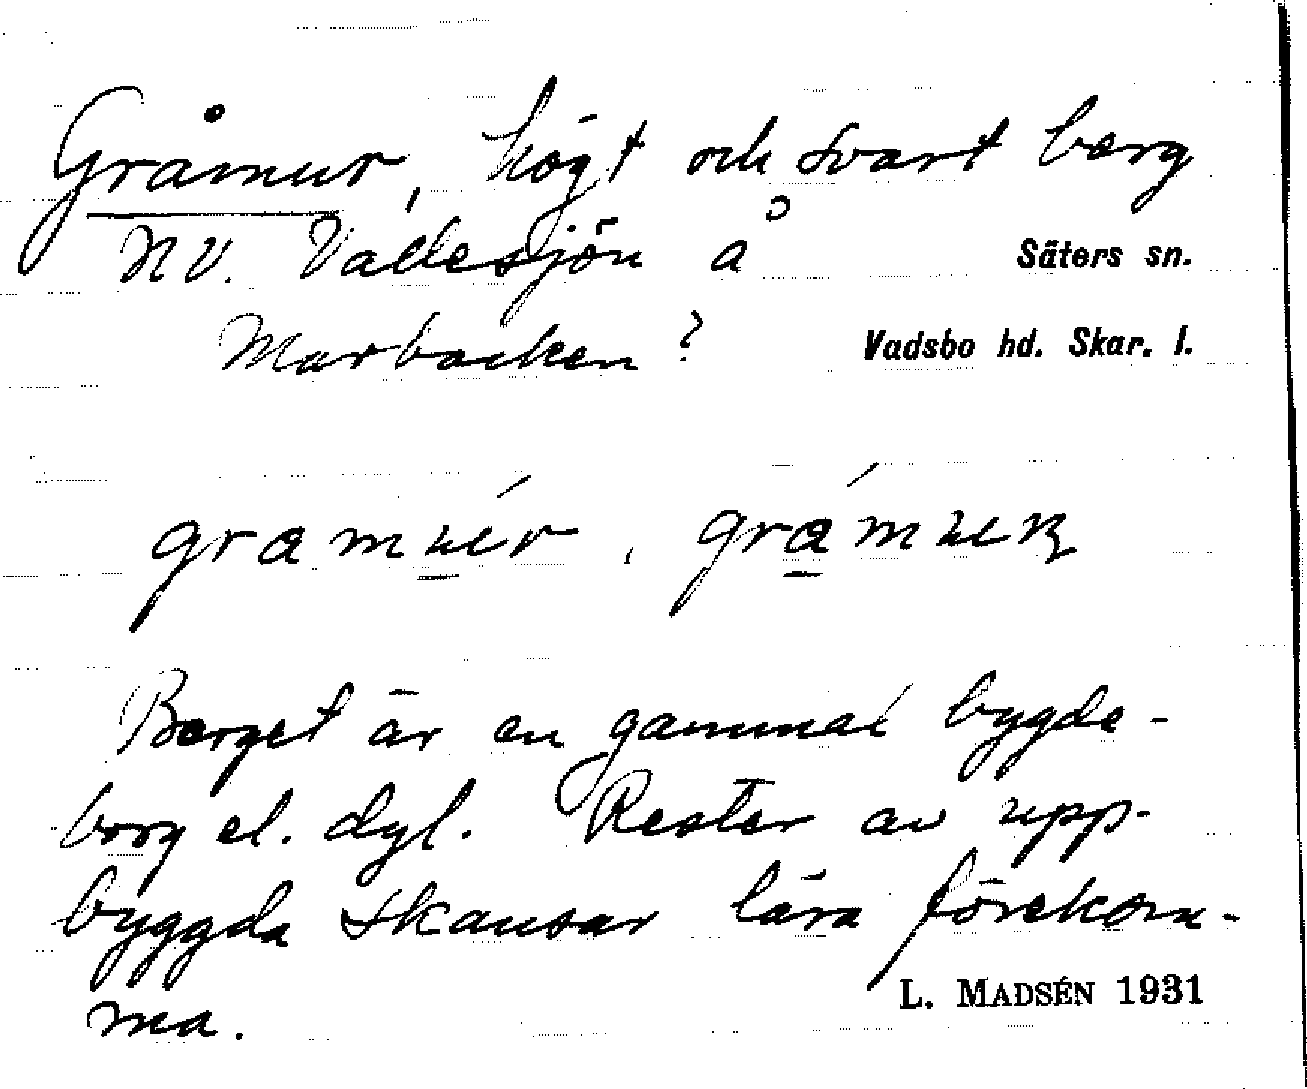 Gråmur, högt och svart berg
NV. Vallesjön å Säters sn.
Marbacken? Vadsbo hd. Skar. l.
Berget är en gammal bygde-
borg el. dyl. Rester av upp-
byggda skansar lära förekom-
ma.
L. MADSÉN 1931